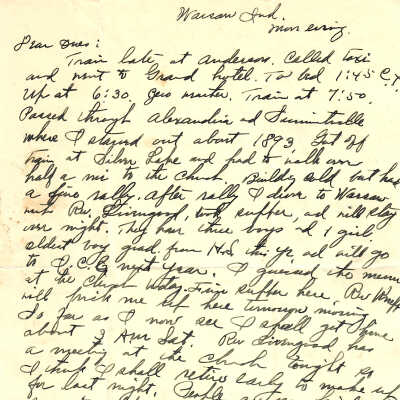 Warsaw Ind.
Mon evening.
Dear Ones:
Train late at Anderson. Called taxi
and went to Grand hotel. To bed 1:45 C.T.
up at 6:30. Train at 7:50.
Passed through Alexandria and Summitville
where I stayed out about 1893. Got off
train at Silver Lake and had to walk over
half a mi to the Church. Building old but had
a fine rally. After rally I drove to Warsaw
with Rev. Livengood, took supper, and will stay
over night. They have three boys and 1 girl
oldest boy grad. from H.S. this yr. and will go
to I.C.C. next year. I guessed the menu
at the Church today. Fine supper here. Rev
will pick me up here tomorrow morning
So far as I now see I shall get home
about 3 Sat. Rev Livengood has
a meeting at the church tonight so
I think I shall retire early to make up
for last night. People